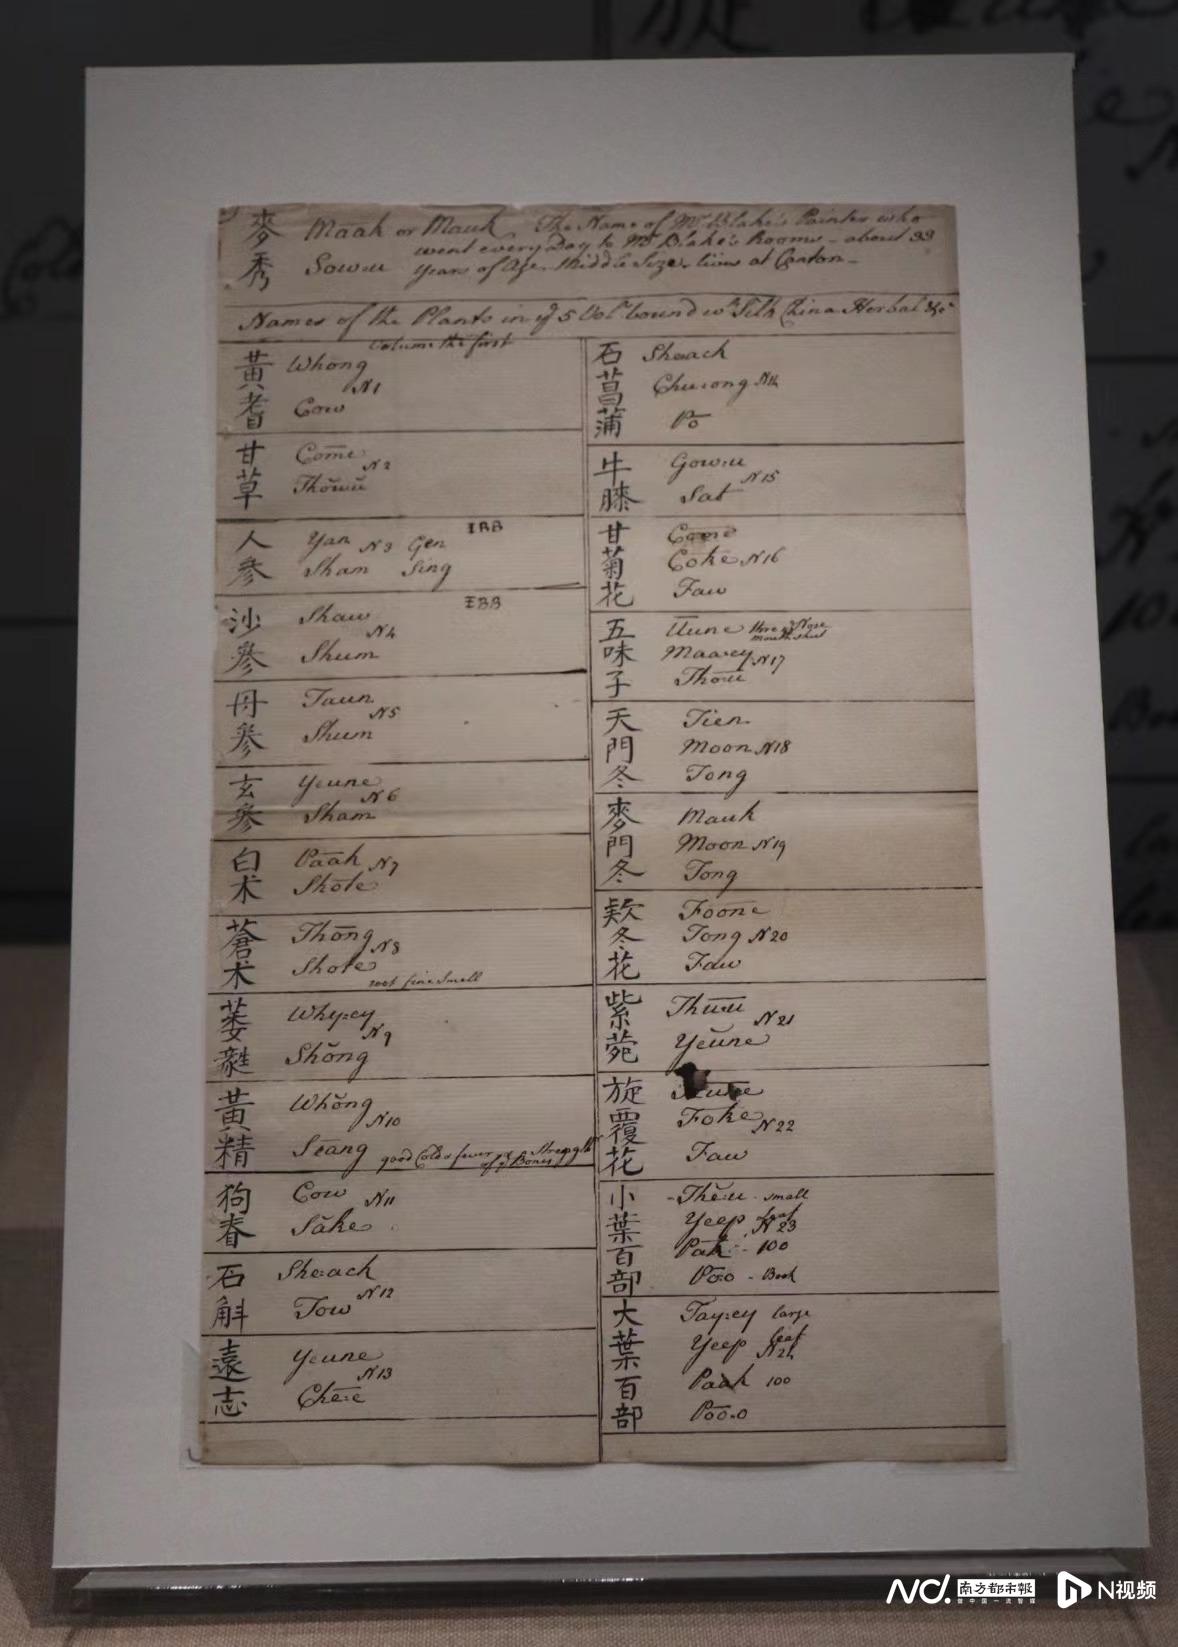 麥秀
Maak or Mauk The Name of Mr Blake's Painter who
went every Day to Mr Blake's Rooms - about 33
Sow:u years of Age. Middle Size. lives at Canton -
Names of the Plants in ye 5 Vol. bound wh Silk China Herbal &c
Volume the first
黃耆
Whong
N1
Cow
甘草
Come
N2
Thŏwŭ
人參
IBB
Yan N3 Gen
Sham Sing
沙參
EBB
Shaw
N4
Shum
丹參
Taun
N5
Shum
玄參
Yeune
N6
Sham
白术
Pāāh N7
Shōte
蒼术
Thōng
N8
Shote
root fine Small
萎蕤
Whyzey
N9
Shŏng
黃精
Whŏng
N10
Seang good Cold & fever
Strength
of ye Bones
狗脊
Cow N11
Săke
石斛
She:ach
N12
Tow
遠志
Yeune
N13
Che:e
石菖蒲
Sheach
Chu:ong N14
Pō
牛膝
Gow:u
N15
Sat
甘菊花
Come
Coke N16
Faw
五味子
Uune
mouth shut
Maa:cy N17
Tho:u
天門冬
Tien
Moon N18
Tong
麥門冬
Mauk
Moon N19
Tong
欵冬花
Foone
Tong N20
Faw
紫菀
Thu:u
N21
Yeŭne
旋覆花
Foke N22
Faw
小葉百部
Thĕ:u - small
Yeep leaf
N23
Pak - 100
Po:o - Book
大葉百部
Tay:ey large
Yeep leaf
N24
Paak 100
Poo.o
南方都市報
做中国一流智媒
N视频